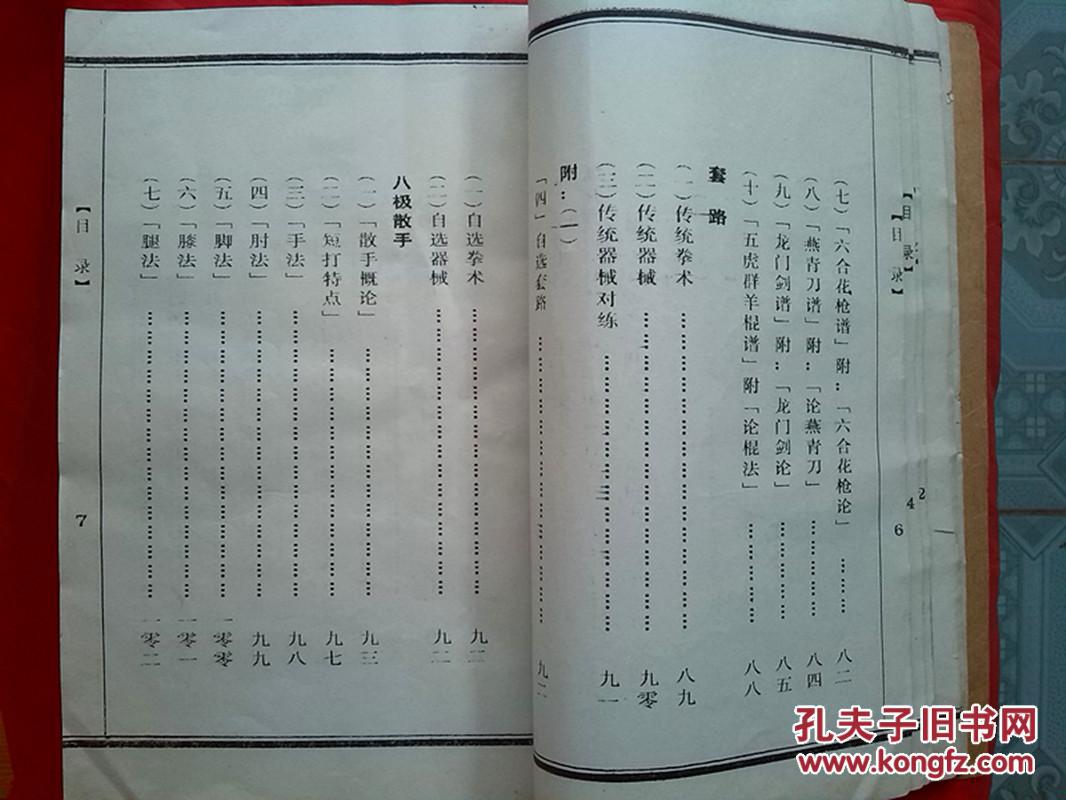 【目录】
4
2
【目录】
6
（七）「六合花枪谱」附：「六合花枪论」………八二
（八）「燕青刀谱」附：「论燕青刀」………八四
（九）「龙门剑谱」附：「龙门剑论」………八五
（十）「五虎群羊棍谱」附「论棍法」………八八
套路
（一）传统拳术………八九
（二）传统器械………九零
（三）传统器械对练………九一
附：（一）
「四」自选套路………九二
（一）自选拳术………九二
（二）自选器械………九二
八极散手
（一）「散手概论」………九三
（二）「短打特点」………九七
（三）「手法」………九八
（四）「肘法」………九九
（五）「脚法」………一零零
（六）「膝法」………一零一
（七）「腿法」………一零二
【目录】
7
孔夫子旧书网
www.kongfz.com